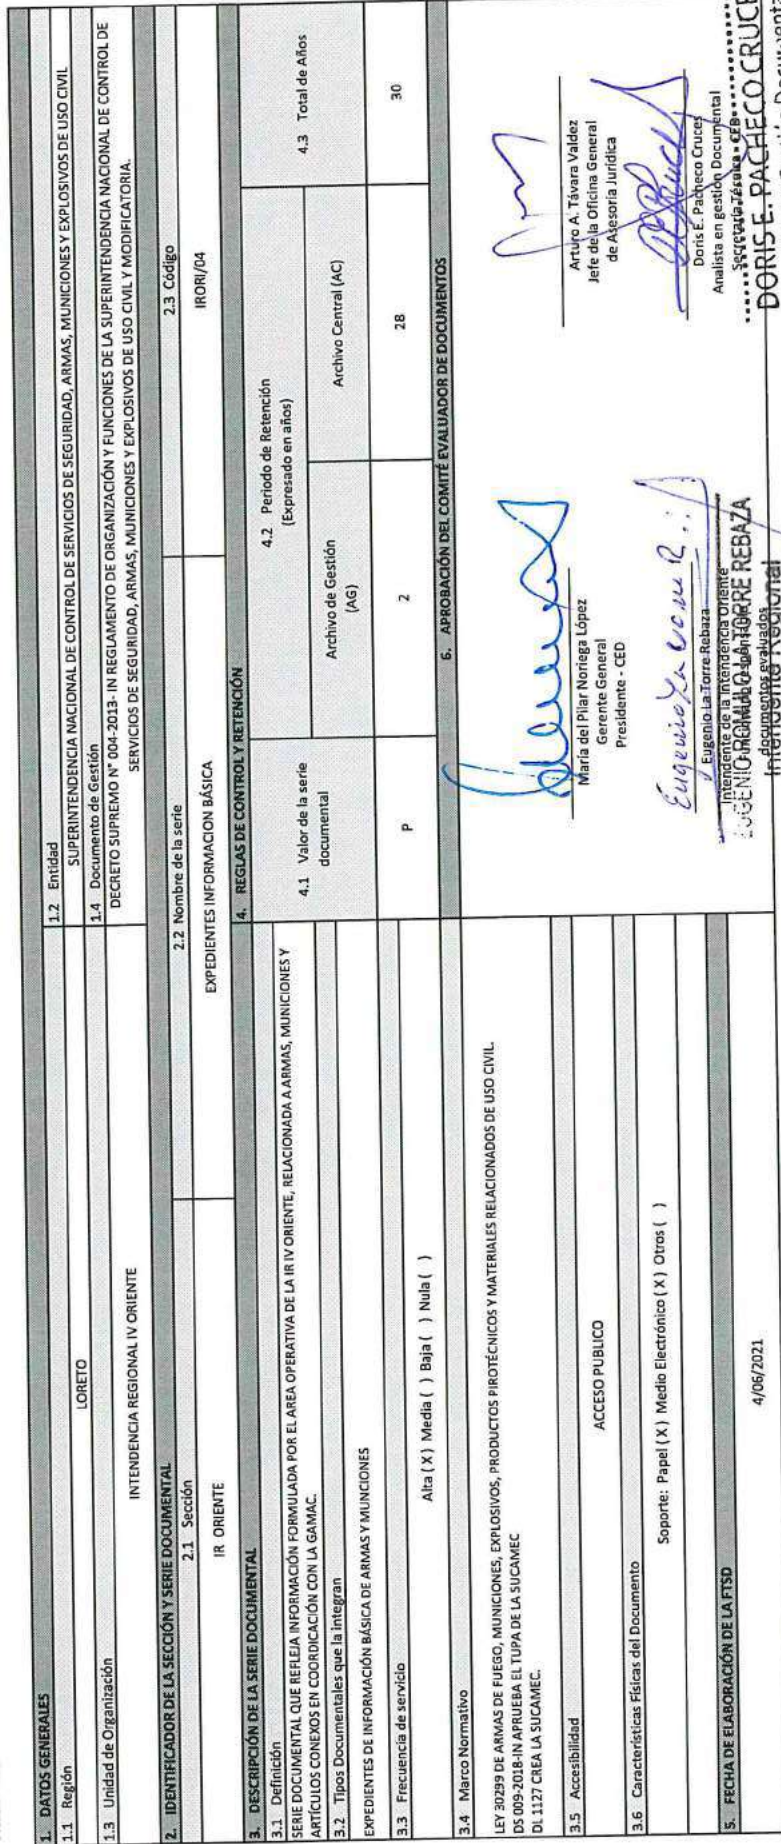 1. DATOS GENERALES
1.1 Región
LORETO
1.2 Entidad
SUPERINTENDENCIA NACIONAL DE CONTROL DE SERVICIOS DE SEGURIDAD, ARMAS, MUNICIONES Y EXPLOSIVOS DE USO CIVIL
1.3 Unidad de Organización
INTENDENCIA REGIONAL IV ORIENTE
1.4 Documento de Gestión
DECRETO SUPREMO N° 004-2013- IN REGLAMENTO DE ORGANIZACIÓN Y FUNCIONES DE LA SUPERINTENDENCIA NACIONAL DE CONTROL DE
SERVICIOS DE SEGURIDAD, ARMAS, MUNICIONES Y EXPLOSIVOS DE USO CIVIL Y MODIFICATORIA.
2. IDENTIFICADOR DE LA SECCIÓN Y SERIE DOCUMENTAL
2.1 Sección
IR ORIENTE
2.2 Nombre de la serie
EXPEDIENTES INFORMACION BÁSICA
2.3 Código
IRORI/04
3. DESCRIPCIÓN DE LA SERIE DOCUMENTAL
3.1 Definición
SERIE DOCUMENTAL QUE REFLEJA INFORMACIÓN FORMULADA POR EL AREA OPERATIVA DE LA IR IV ORIENTE, RELACIONADA A ARMAS, MUNICIONES Y
ARTÍCULOS CONEXOS EN COORDICACIÓN CON LA GAMAC.
3.2 Tipos Documentales que la integran
EXPEDIENTES DE INFORMACIÓN BÁSICA DE ARMAS Y MUNCIONES
3.3 Frecuencia de servicio
Alta ( X ) Media ( ) Baja ( ) Nula ( )
3.4 Marco Normativo
LEY 30299 DE ARMAS DE FUEGO, MUNICIONES, EXPLOSIVOS, PRODUCTOS PIROTÉCNICOS Y MATERIALES RELACIONADOS DE USO CIVIL.
DS 009-2018-IN APRUEBA EL TUPA DE LA SUCAMEC
DL 1127 CREA LA SUCAMEC.
3.5 Accesibilidad
ACCESO PUBLICO
3.6 Características Físicas del Documento
Soporte: Papel ( X ) Medio Electrónico ( X ) Otros ( )
5. FECHA DE ELABORACIÓN DE LA FTSD
4/06/2021
4. REGLAS DE CONTROL Y RETENCIÓN
4.1 Valor de la serie
documental
4.2 Periodo de Retención
(Expresado en años)
4.3 Total de Años
Archivo de Gestión
(AG)
Archivo Central (AC)
P
2
28
30
6. APROBACIÓN DEL COMITÉ EVALUADOR DE DOCUMENTOS
María del Pilar Noriega López
Gerente General
Presidente - CED
Arturo A. Távara Valdez
Jefe de la Oficina General
de Asesoria Jurídica
Eugenio La Torre R.
Eugenio La Torre Rebaza
Intendente de la Intendencia Oriente
EUGENIO ROMULO LA TORRE REBAZA
documentos evaluados
Intendente Regional
Doris E. Pacheco Cruces
Analista en gestión Documental
Secretaria Técnica - CED
DORIS E. PACHECO CRUCE